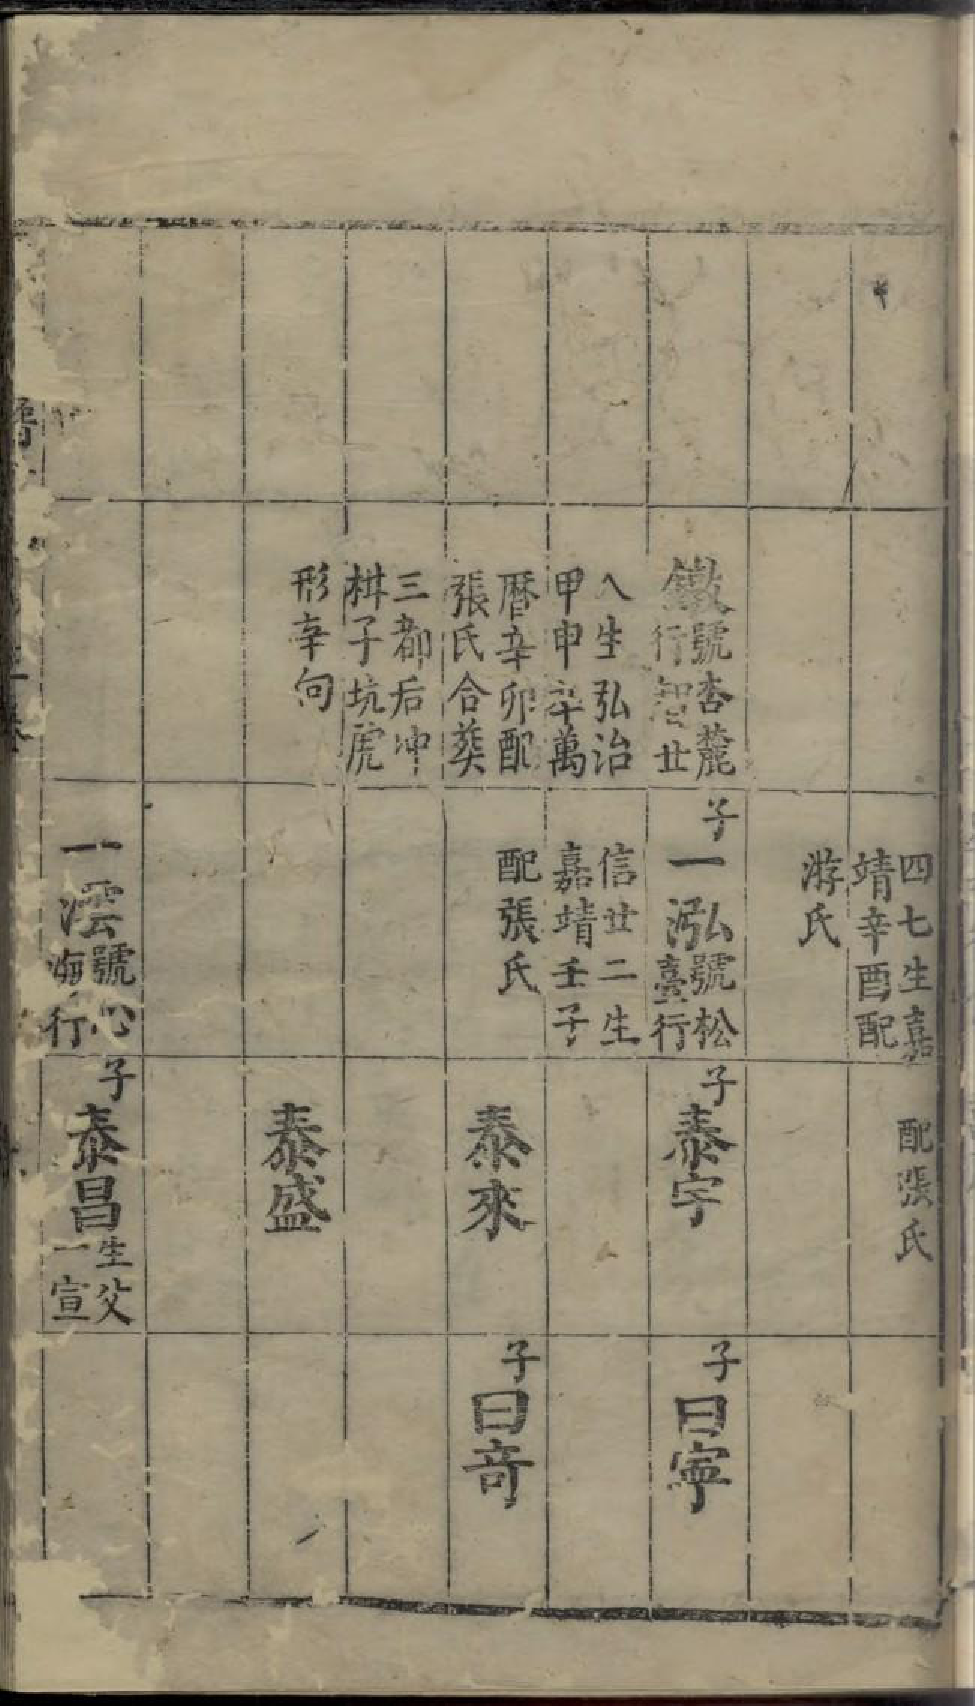 四七生嘉
靖辛酉配
游氏
配張氏
鐓號杏麓
行智廿
八生弘治
甲申卒萬
曆辛卯配
張氏合葬
三都后冲
枡子坑虎
形辛向
子
一泓號松
臺行
信廿二生
嘉靖壬子
配張氏
子
泰宇
子
曰寧
泰來
子
曰竒
泰盛
一澐號心
海行
子
泰昌生父
一宣